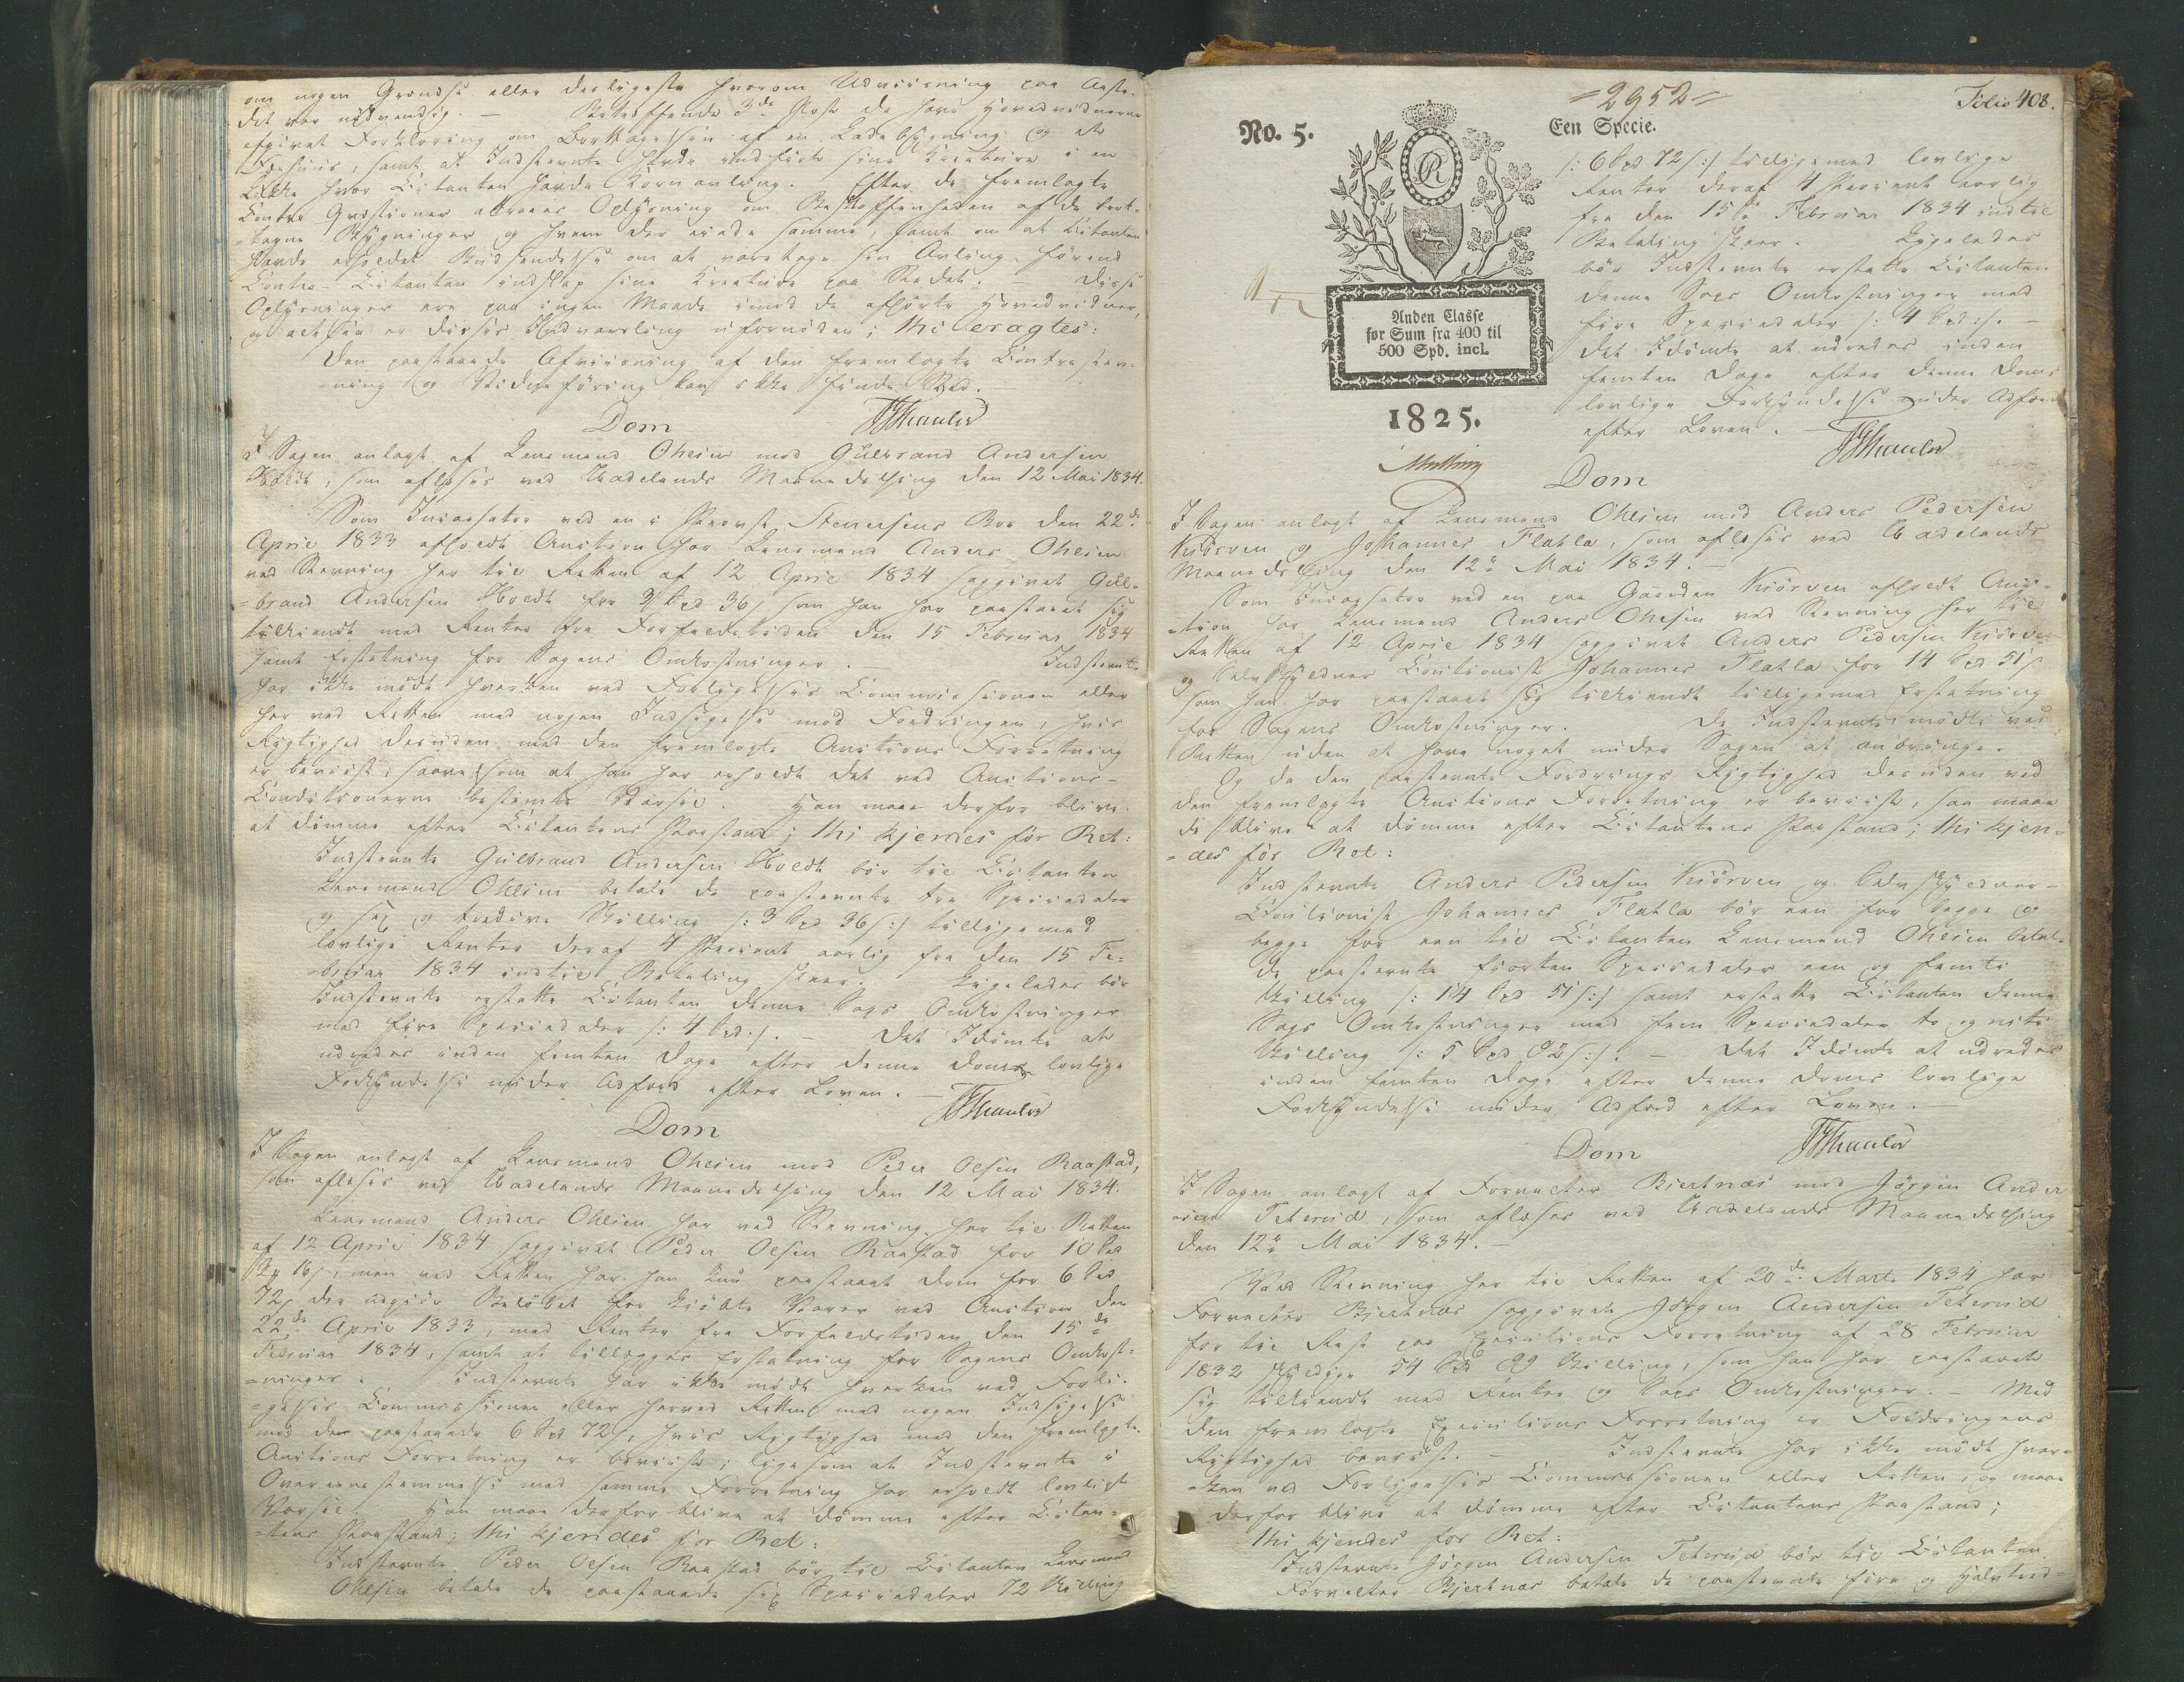 om nogen Grændse eller desligeste hvorom Udviisning paa Aaste-
det var nødvendig. — Betræffende 3die Post da have Hovedvidnerne
afgivet Forklaring om Borttagelsen af en Ladebygning og et
Fæhuus, samt at Indstevnte havde indført sine Kreature i en
Løkke hvor Citanten havde Kornavling. Efter de fremlagte
Contra Qvæstioner attraaes Oplysning om Beskaffenheden af de bort-
=tagne Bygninger og hvem der eiede samme, samt om at Citanten
havde erholdet Budsendelse om at varetage sin Avling, førend
Contra-Citanten indslap sine Kreature paa Stedet. — Disse
Oplysninger ere paa ingen Maade imod de afhørte Hovedvidner,
og altsaa er disses Indvarsling ufornøden; thi eragtes:
Den paastaaede Afviisning af den fremlagte Contrastev-
=ning og Vidneføring kan ikke finde Sted. —
Dom
I Sagen anlagt af Lensmand Ohlsen mod Gulbrand Andersen
som aflæses ved Hadelands Maanedsthing den 12 Mai 1834.
Som Incassator ved en i Provst Stenersens Boe den 22de
April 1833 afholdt Auction har Lensmand Anders Ohlsen
ved Stevning her til Retten af 12 April 1834 saggivet Gul-
=brand Andersen for 3 Spd 36 s som han har paastaaet sig
tilkiendt med Renter fra Forfaldstiden den 15 Februar 1834
samt Erstatning for Sagens Omkostninger. — Indstevnte
har ikke mødt hverken ved Forligelses Commissionen eller
her ved Retten med nogen Indsigelse mod Fordringen, hvis
Rigtighed desuden med den fremlagte Auctions Forretning
er beviist, saavelsom at han har erholdt det ved Auctions-
Conditionerne bestemte Varsel. Han maae derfor blive
at dømme efter Citantens Paastand; thi kjendes for Ret:
Indstevnte Gulbrand Andersen bør til Citanten
Lensmand Ohlsen betale de paastevnte tre Speciedaler
og sex og tredive Skilling /: 3 Spd 36 s :/ tilligemed
lovlige Renter deraf 4 Procent aarlig fra den 15 Fe-
=bruar 1834 indtil Betaling skeer. Ligeledes bør
Indstevnte erstatte Citanten denne Sags Omkostninger
med fire Speciedaler /: 4 Spd :/. — Det Idømte at
udredes inden femten Dage efter denne Doms lovlige
Forkyndelse under Adfærd efter Loven. —
Dom
I Sagen anlagt af Lensmand Ohlsen mod Peder Olsen Raastad,
som aflæses ved Hadelands Maanedsthing den 12 Mai 1834.
Lensmand Anders Ohlsen har ved Stevning her til Retten
af 12 April 1834 saggivet Peder Olsen Raastad for 10 Spd
16 s, men ved Retten har han kun paastaaet Dom for 6 Spd
72 s der udgiør Beløbet for kiøbte Varer ved Auction den
22de April 1833, med Renter fra Forfaldstiden den 15de
Februar 1834, samt at tillægges Erstatning for Sagens Omkost-
=ninger. Indstevnte har ikke mødt hverken ved Forli-
=gelses Commissionen eller herved Retten med nogen Indsigelse
mod den paastaaede 6 Spd 72 s, hvis Rigtighed med den fremlagte
Auctions Forretning er beviist; ligesom at Indstevnte i
Overeensstemmelse med samme Forretning har erholdt lovligt
Varsel. Han maae derfor blive at dømme efter Citan-
=tens Paastand; thi kjendes for Ret:
Indstevnte Peder Olsen Raastad bør til Citanten Lensmand
Ohlsen betale de paastaaede sex Speciedaler 72 Skilling
=2952=
Folio 408.
No. 5.
Een Specie.
R
Anden Classe
for Sum fra 400 til
500 Spd. incl.
1825.
/: 6 Spd 72 s :/ tilligemed lovlige
Renter deraf 4 Procent aarlig
fra den 15de Februar 1834 indtil
Betaling skeer. Ligeledes
bør Indstevnte erstatte Citanten
denne Sags Omkostninger med
fire Speciedaler /: 4 Spd :/. —
Det Idømte at udredes inden
femten Dage efter denne Doms
lovlige Forkyndelse under Adfærd
efter Loven. —
Dom
I Sagen anlagt af Lensmand Ohlsen mod Anders Pedersen
Kiørven og Johannes Flatla, som aflæses ved Hadelands
Maanedsthing den 12te Mai 1834. —
Som Incassator ved en paa Gaarden Kiørven afholdt Auc-
=tion har Lensmand Anders Ohlsen ved Stevning her til
Retten af 12 April 1834 saggivet Anders Pedersen Kiørven
og Selvskyldner Cautionist Johannes Flatla for 14 Spd 51 s
som han har paastaaet sig tilkiendt tilligemed Erstatning
for Sagens Omkostninger. De Indstevnte mødte ved
Retten uden at have noget under Sagen at anbringe.
Og da den paastevnte Fordrings Rigtighed desuden ved
den fremlagte Auctions Forretning er beviist, saa maae
de blive at dømme efter Citantens Paastand; thi kjen-
=des for Ret:
Indstevnte Anders Pedersen Kiørven og Selvskyldner-
Cautionist Johannes Flatla bør een for begge og
begge for een til Citanten Lensmand Ohlsen betale
de paastevnte fjorten Speciedaler een og femti
Skilling /: 14 Spd 51 s :/ samt erstatte Citanten denne
Sags Omkostninger med fem Speciedaler to og niti
Skilling /: 5 Spd 92 s :/. — Det Idømte at udredes
inden femten Dage efter denne Doms lovlige
Forkyndelse under Adfærd efter Loven. —
Dom
I Sagen anlagt af Forvalter Bjertnæs mod Jørgen Ander
=sen Teterud, som aflæses ved Hadelands Maanedsthing
den 12te Mai 1834. —
Ved Stevning her til Retten af 20de Marts 1834 har
Forvalter Bjertnæs saggivet Jørgen Andersen Teterud
for til Rest paa Executions Forretning af 28 Februar
1832 skyldige 54 Spd 99 Skilling, som han har paastaaet
sig tilkiendt med Renter og Sags Omkostninger. — Med
den fremlagte Executions Forretning er Fordringens
Rigtighed beviist. — Indstevnte har ikke mødt hver-
=ken ved Forligelses Commissionen eller Retten, og maae
derfor blive at dømme efter Citantens Paastand;
thi kjendes for Ret:
Indstevnte Jørgen Andersen Teterud bør til Citanten
Forvalter Bjertnæs betale de paastevnte fire og halvtred-